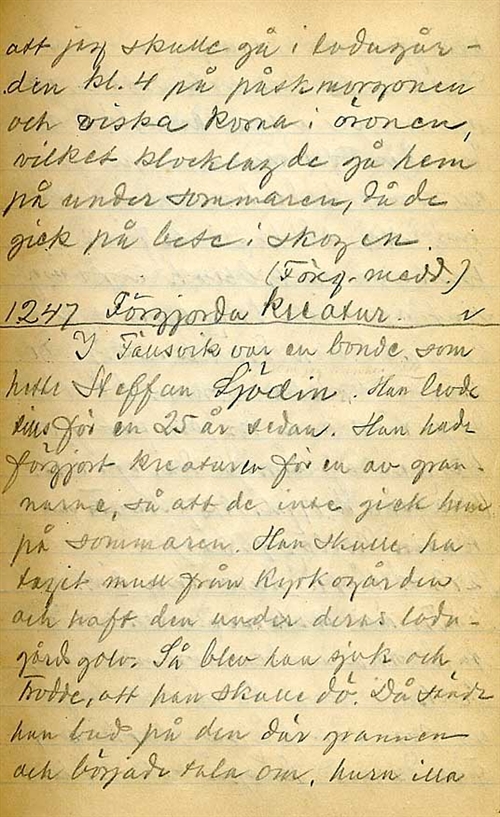 att jag skulle gå i ladugår-
den kl. 4 på påskmorgonen
och viska korna i öronen,
vilket klockslag de gå hem
på under sommaren, då de
gick på bete i skogen.
(Föreg. medd.)
1247 Förgjorda kreatur. v
I Fällsvik var en bonde som
hette Steffan Sjödin. Han levde
tills för en 25 år sedan. Han hade
förgjort kreaturen för en av gran-
narne, så att de inte gick hem
på sommaren. Han skulle ha
tagit mull från kyrkogården
och haft den under deras ladu-
gårdsgolv. Så blev han sjuk och
trodde, att han skulle dö. Då sände
han bud på den där grannen
och började tala om, huru illa